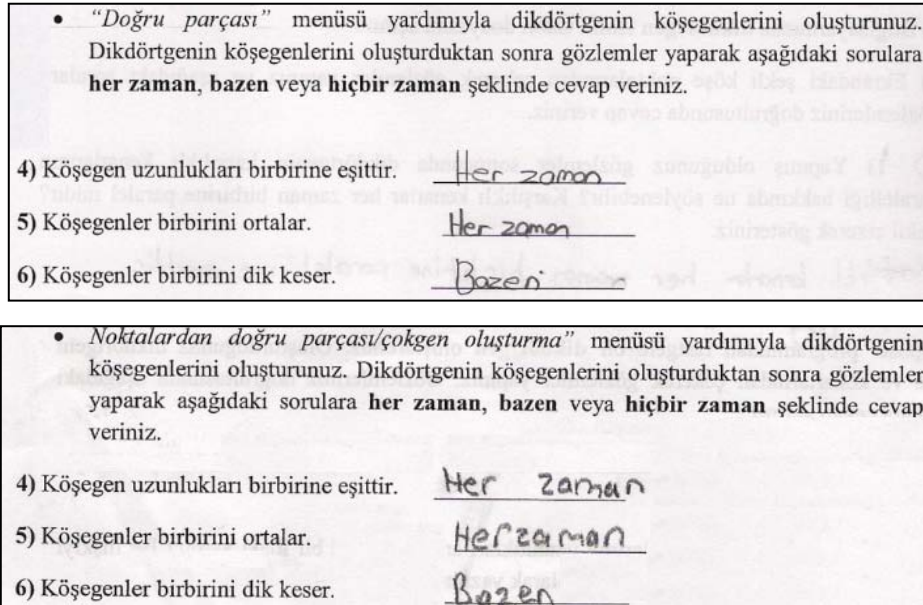 • “Doğru parçası” menüsü yardımıyla dikdörtgenin köşegenlerini oluşturunuz.
Dikdörtgenin köşegenlerini oluşturduktan sonra gözlemler yaparak aşağıdaki sorulara
her zaman, bazen veya hiçbir zaman şeklinde cevap veriniz.
4) Köşegen uzunlukları birbirine eşittir. Her zaman
5) Köşegenler birbirini ortalar. Her zaman
6) Köşegenler birbirini dik keser. Bazen
• Noktalardan doğru parçası/çokgen oluşturma” menüsü yardımıyla dikdörtgenin
köşegenlerini oluşturunuz. Dikdörtgenin köşegenlerini oluşturduktan sonra gözlemler
yaparak aşağıdaki sorulara her zaman, bazen veya hiçbir zaman şeklinde cevap
veriniz.
4) Köşegen uzunlukları birbirine eşittir. Her zaman
5) Köşegenler birbirini ortalar. Herzaman
6) Köşegenler birbirini dik keser. Bazen